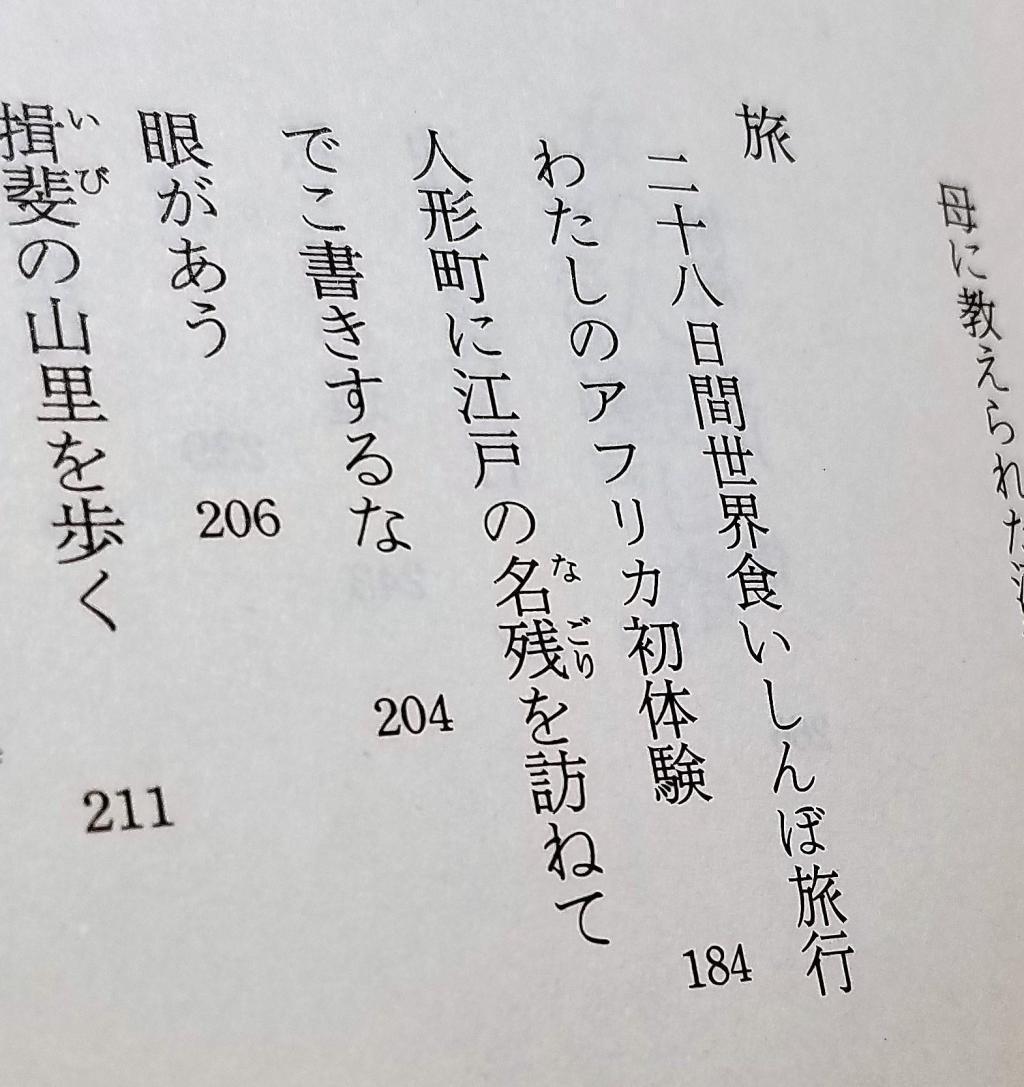 母に教えられた
旅
二十八日間世界食いしんぼ旅行
わたしのアフリカ初体験 184
人形町に江戸の名残を訪ねて
なごり
でこ書きするな 204
眼があう 206
揖斐の山里を歩く 211
いび